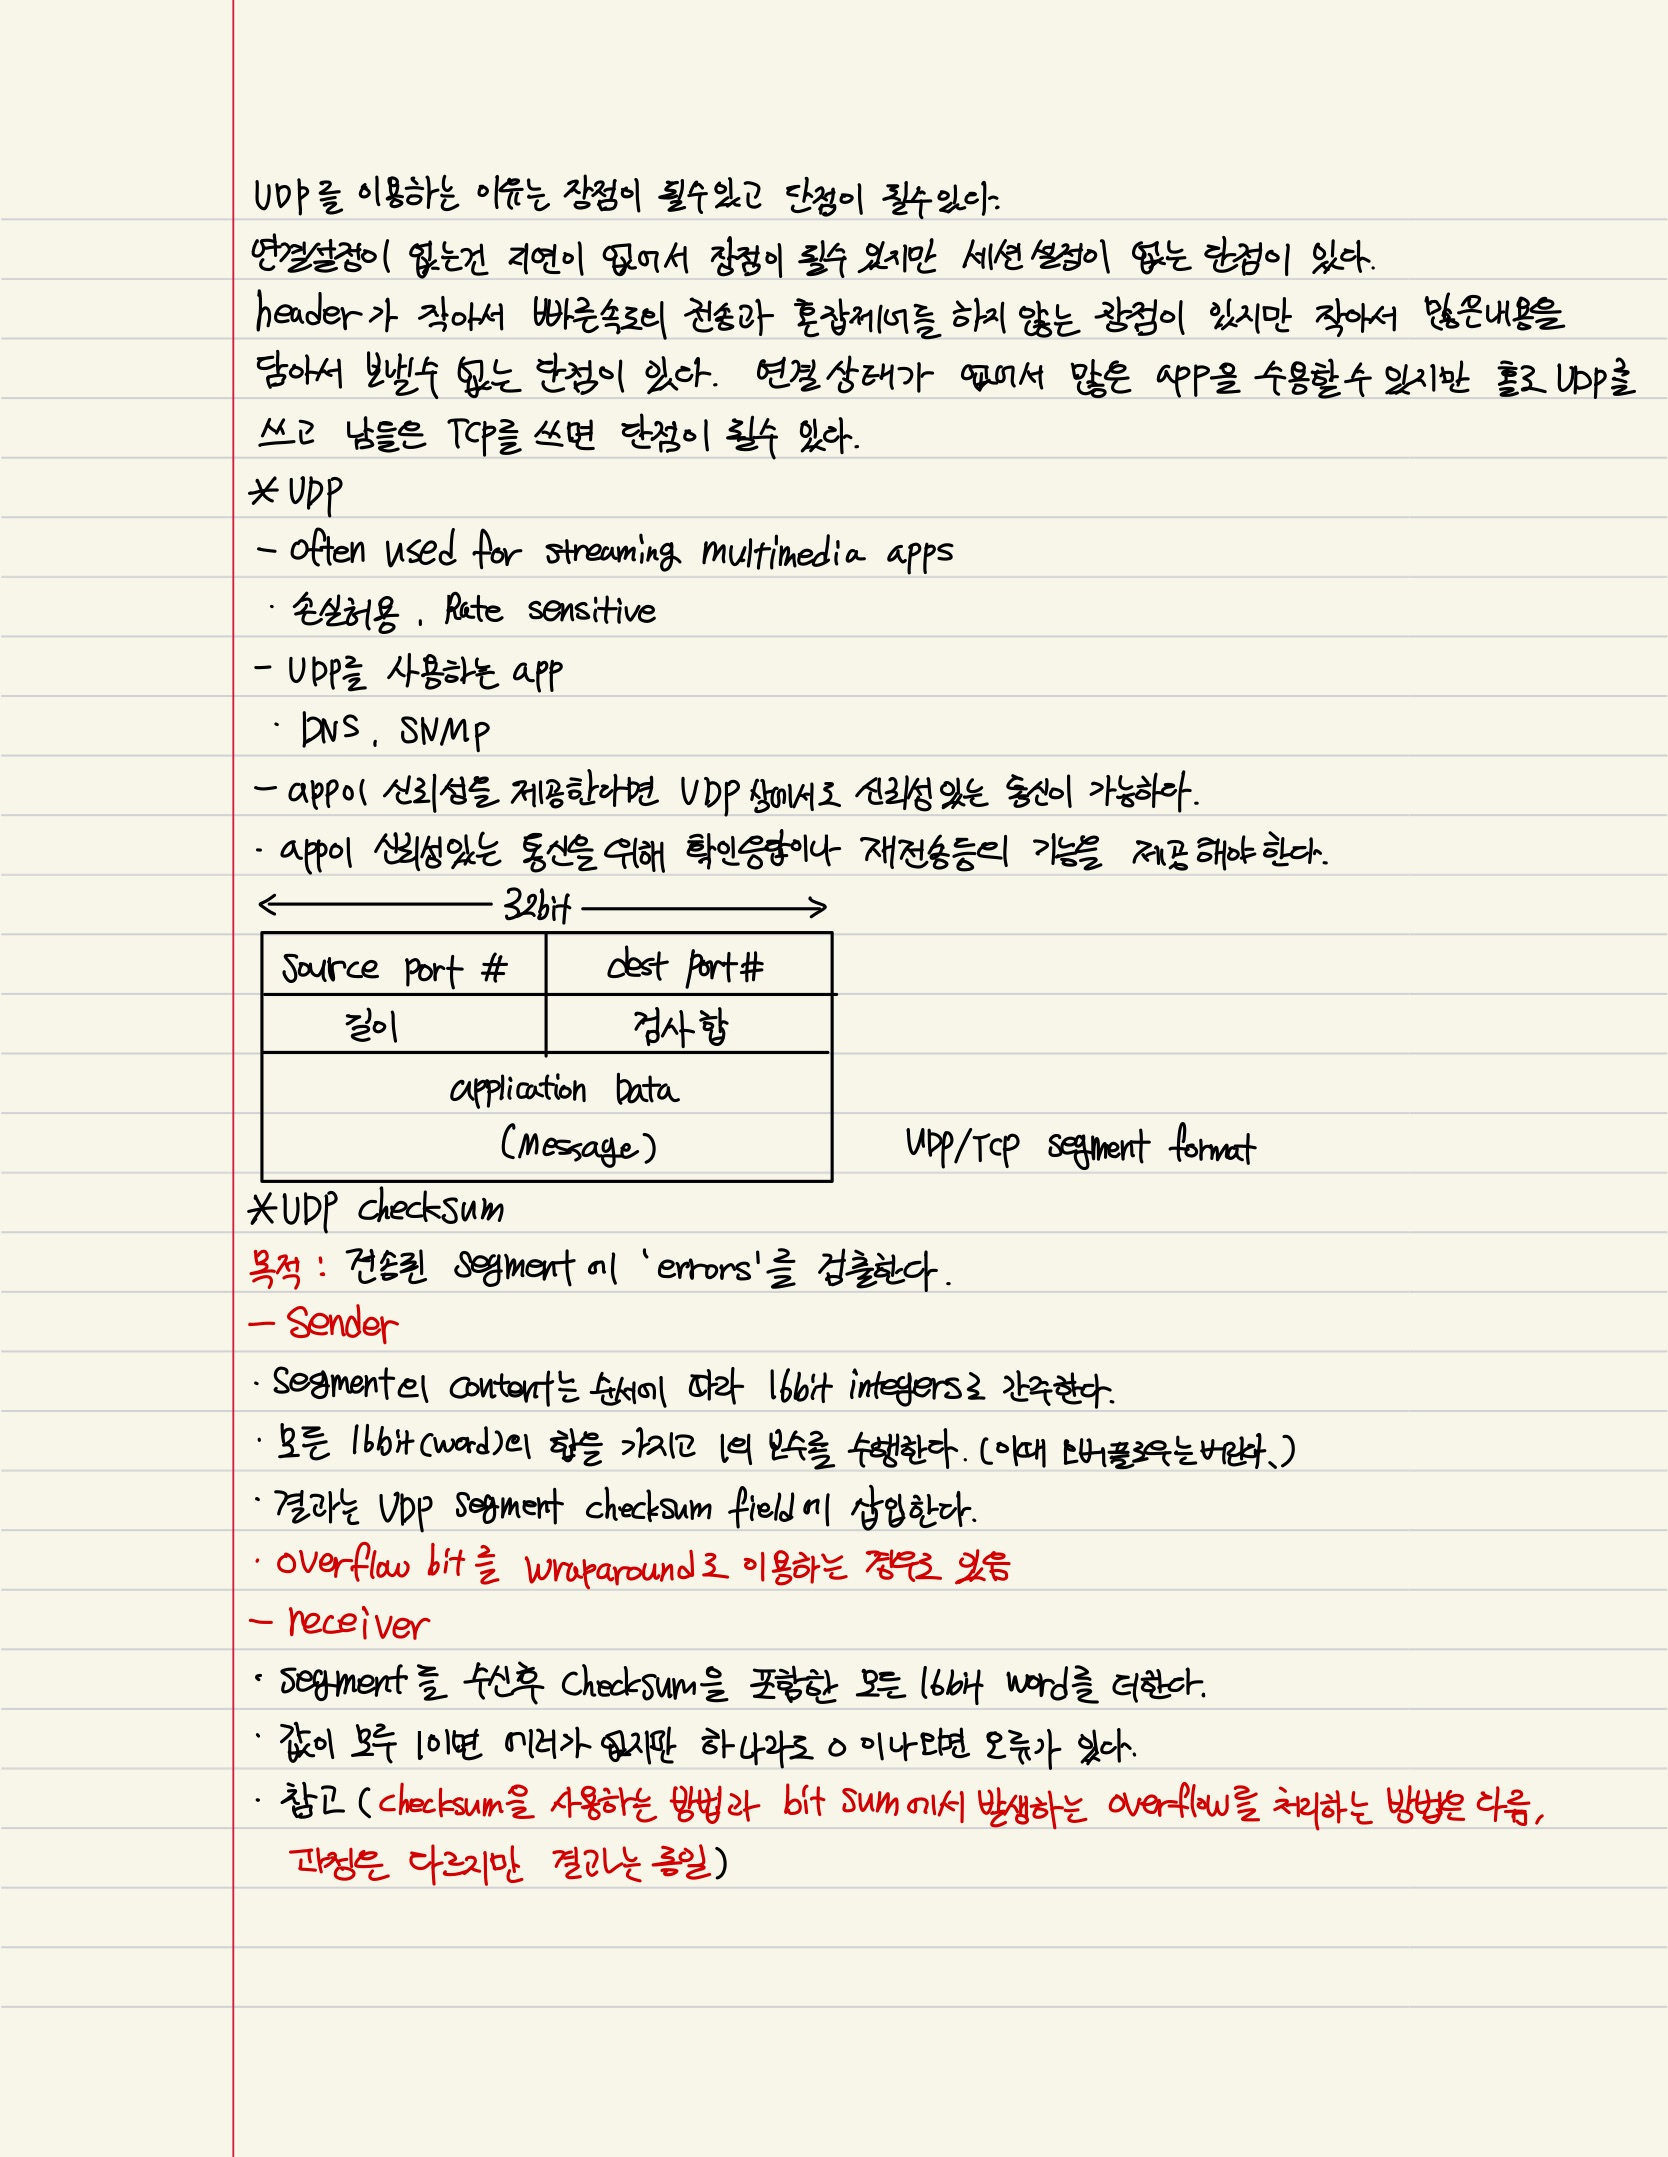 UDP를 이용하는 이유는 장점이 될수있고 단점이 될수있다.
연결설정이 없는건 지연이 없어서 장점이 될수 있지만 세션 설정이 없는 단점이 있다.
header가 작아서 빠른속도의 전송과 혼잡제어를 하지 않는 장점이 있지만 작아서 많은내용을
담아서 보낼수 없는 단점이 있다. 연결 상태가 없어서 많은 app을 수용할 수 있지만 홀로 UDP를
쓰고 남들은 TCP를 쓰면 단점이 될수 있다.
* UDP
- Often used for streaming multimedia apps
· 손실허용, Rate sensitive
- UDP를 사용하는 app
· DNS, SNMP
- app이 신뢰성을 제공한다면 UDP 상에서도 신뢰성있는 통신이 가능하다.
· app이 신뢰성있는 통신을 위해 확인응답이나 재전송등의 기능을 제공해야한다.
32bit
Source port # dest port#
길이 검사합
application Data
(Message)
UDP/TCP segment format
*UDP checksum
목적 : 전송된 segment에 'errors'를 검출한다.
- Sender
· Segment의 content는 순서에 따라 16bit integers로 간주한다.
· 모든 16bit(word)의 합을 가지고 1의 보수를 수행한다. (이때 오버플로우는 버린다.)
· 결과는 UDP segment checksum field에 삽입한다.
· overflow bit를 wraparound로 이용하는 경우도 있음
- receiver
· segment를 수신후 Checksum을 포함한 모든 16bit word를 더한다.
· 값이 모두 1이면 에러가 없지만 하나라도 0이나오면 오류가 있다.
· 참고 (checksum을 사용하는 방법과 bit sum에서 발생하는 overflow를 처리하는 방법은 다름,
과정은 다르지만 결과는 동일)